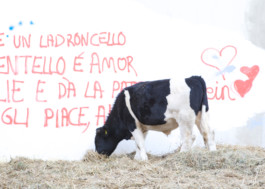 È UN LADRONCELLO
ENTELLO É AMOR
LIE E DÀ LA
GLI PIACE, A